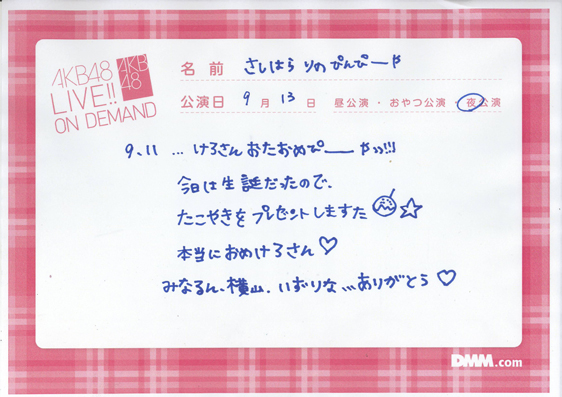 AKB48
LIVE!!
ON DEMAND
AKB
48
名前 さしはら りのぴんぴーや
公演日 9月13日 昼公演・おやつ公演・夜公演
9.11 …けろさんおたおめぴーやっ!!!
今日は生誕だったので、
たこやきをプレゼントしますた☆
本当におめけろさん♡
みなるん、横山、いずりな、、、ありがとう♡
DMM.com